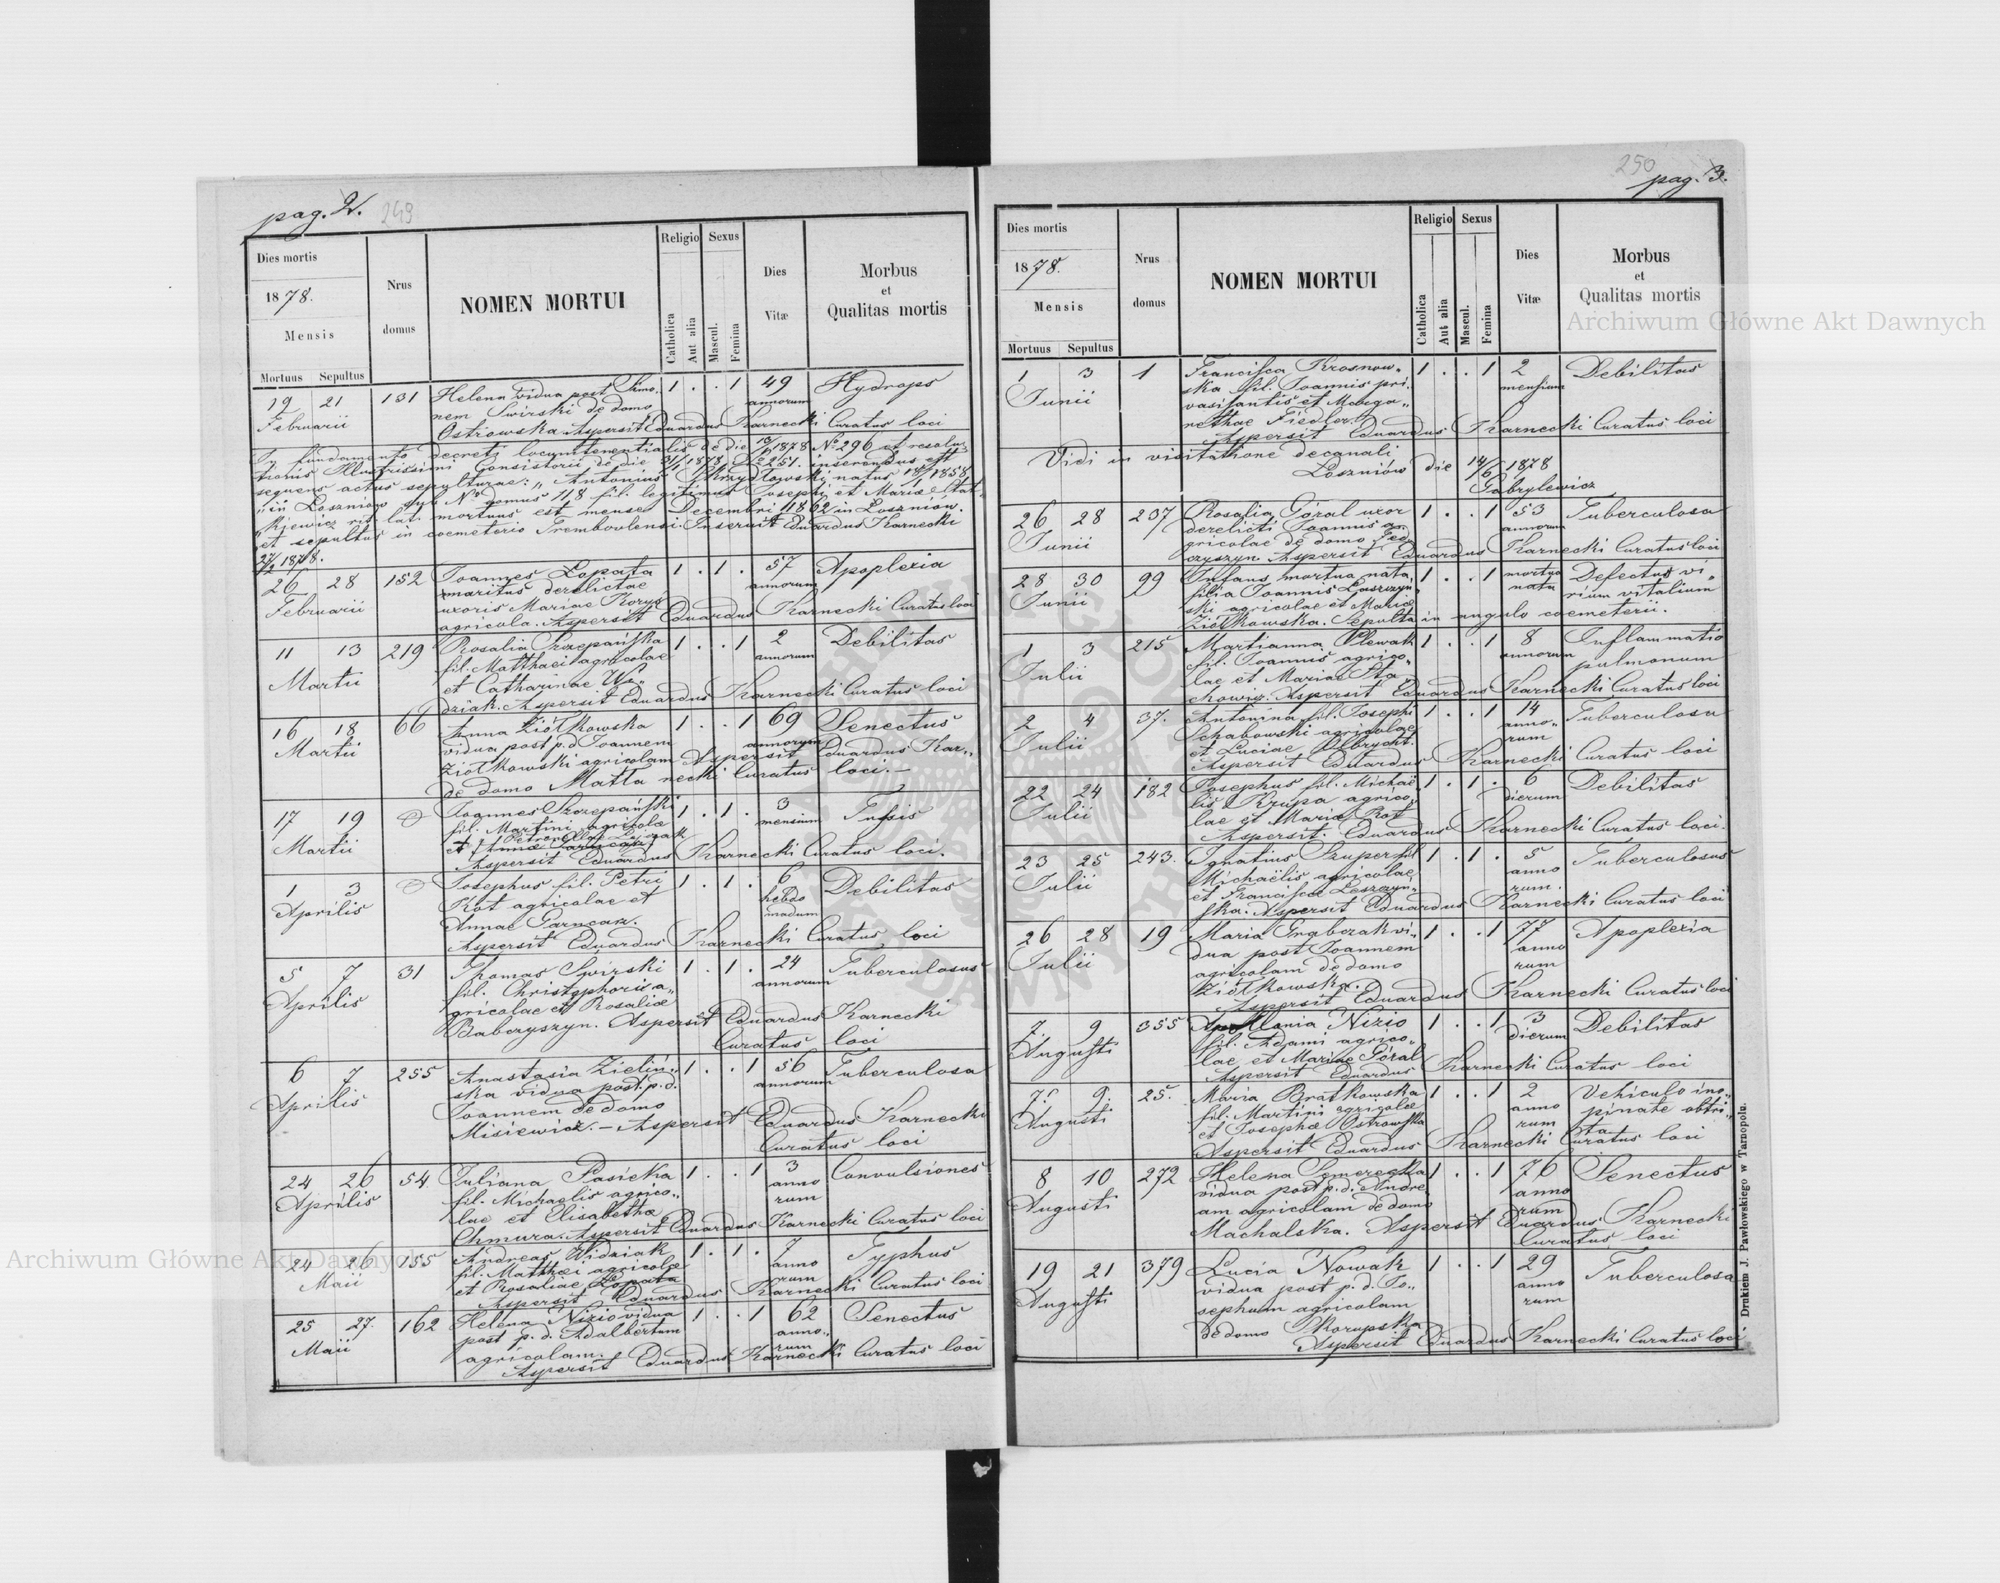 pag. 2.
249
Dies mortis
1878.
Mensis
Mortuus Sepultus
Nrus
domus
NOMEN MORTUI
Religio
Catholica
Aut alia
Sexus
Mascul.
Femina
Dies
Vitæ
Morbus
et
Qualitas mortis
19 21 131 Helena vidua post Simo- 1 . . 1 49 Hydrops
Februarii nem Swirski de domo annorum
Ostrowska Aspersit Eduardus Karnecki Curatus loci
In fundamento decreti locumtenentialis de die 1878 No 296 et resolu-
tionis Illustrissimi Consistorii de die 1878 No 251. inserendus est
sequens actus sepulturae: „Antonius Skrzydłowski natus 1858
„in Łoszniów sub No domus 118 fil. legitimus Josephi et Mariae
rit. lat. mortuus est mense Decembri 1862 in Łoszniów.
„et sepultus in coemeterio Trembovlensi. Inseruit Eduardus Karnecki
1878.
26 28 152 Joannes Łopata 1 . 1 . 57 Apoplexia
Februarii maritus derelictae annorum
uxoris Mariae Koryz
agricola. Aspersit Eduardus Karnecki Curatus loci
11 13 219 Rosalia Szczepańska 1 . . 1 2 Debilitas
Martii fil. Matthaei agricolae annorum
et Catharinae Wi-
dziak. Aspersit Eduardus Karnecki Curatus loci
16 18 66 Anna Ziółkowska 1 . . 1 69 Senectus
Martii vidua post p. d. Joannem annorum
Ziółkowski agricolam Aspersit Eduardus Kar-
de domo Matla necki Curatus loci.—
17 19 Joannes Szczepański 1 . 1 . 3 Tussis
Martii fil. Martini agricolae mensium
Petronellae
et Annae Garncarz
Aspersit Eduardus Karnecki Curatus loci.
1 3 Josephus fil. Petri 1 . 1 . 6 Debilitas
Aprilis Kot agricolae et hebdo
Annae Garncarz. madum
Aspersit Eduardus Karnecki Curatus loci
5 7 31 Thomas Swirski 1 . 1 . 24 Tuberculosus
Aprilis fil. Christophori a- annorum
gricolae et Rosaliae
Babczyszyn. Aspersit Eduardus Karnecki
Curatus loci
6 7 255 Anastasia Zieliń- 1 . . 1 56 Tuberculosa
Aprilis ska vidua post. p. d. annorum
Joannem de domo
Misiewicz. — Aspersit Eduardus Karnecki
Curatus loci
24 26 54 Juliana Pasieka 1 . . 1 3 Convulsiones
Aprilis fil. Michaelis agrico- anno
lae et Elisabethae rum
Chmura. Aspersit Eduardus Karnecki Curatus loci
24 26 155 Andreas Widziak 1 . 1 . 7 Typhus
Maii fil. Matthaei agricolae anno
et Rosaliae Łopata rum
Aspersit Eduardus Karnecki Curatus loci
25 27. 162 Helena Nizio vidua 1 . . 1 62 Senectus
Maii post p. d. Adalbertum anno-
agricolam. rum
Aspersit Eduardus Karnecki Curatus loci
250
pag. 3.
Dies mortis
1878.
Mensis
Mortuus Sepultus
Nrus
domus
NOMEN MORTUI
Religio
Catholica
Aut alia
Sexus
Mascul.
Femina
Dies
Vitæ
Morbus
et
Qualitas mortis
1 3 1 Francisca Krosnow- 1 . . 1 2 Debilitas
Junii ska fil. Joannis pri- mensium
vasitantis et Marga-
rethae Fiedler.
Aspersit Eduardus Karnecki Curatus loci
Vidi in visitatione decanali
Łoszniów die 14/6 1878
Gabrylewicz
26 28 237 Rosalia Góral uxor 1 . . 1 53 Tuberculosa
Junii derelicti Joannis a- annorum
gricolae de domo Fed-
czyszyn. Aspersit Eduardus Karnecki Curatus loci
28 30 99 Infans mortua nata, 1 . . 1 mortua Defectus vi-
Junii filia Joannis Leszczyn- nata rium vitalium
ski agricolae et Mariae
Ziółkowska. Sepulta in angulo coemeterii.
1 3 215 Martianna Plewak 1 . . 1 8 Inflammatio
Julii fil. Joannis agrico- annorum pulmonum
lae et Mariae Sta-
chowicz. Aspersit Eduardus Karnecki Curatus loci
2 4 37. Antonina fil. Josephi 1 . . 1 14 Tuberculosa
Julii Schabowski agricolae anno-
et Luciae Olbrycht. rum
Aspersit Eduardus Karnecki Curatus loci
22 24 182 Josephus fil. Michaë- 1 . 1 . 6 Debilitas
Julii lis Krupa agrico- dierum
lae et Mariae Kot
Aspersit. Eduardus Karnecki Curatus loci.
23 25 243. Ignatius Szuper fil 1 . 1 . 5 Tuberculosus
Julii Michaëlis agricolae anno
et Franciscae Leszczyn- rum.
ska. Aspersit Eduardus Karnecki Curatus loci
26 28 19 Maria Grabczak vi- 1 . . 1 77 Apoplexia
Julii dua post Joannem anno
agricolam de domo rum
Ziółkowska.
Aspersit Eduardus Karnecki Curatus loci
7 9 355 Apollonia Nizio 1 . . 1 3 Debilitas
Augusti fil. Adami agrico- dierum
lae et Mariae Góral
Aspersit Eduardus Karnecki Curatus loci
7. 9. 25. Maria Bratkowska 1 . . 1 2 Vehiculo ino-
Augusti fil. Martini agricolae anno pinate obtri-
et Josephae Ostrowska rum ta
Aspersit Eduardus Karnecki Curatus loci
8 10 272 Helena Semerecka 1 . . 1 76 Senectus
Augusti vidua post p. d. Andre- anno
am agricolam de domo rum
Machalska. Aspersit Eduardus Karnecki
Curatus loci
19 21 379 Lucia Nowak 1 . . 1 29 Tuberculosa
Augusti vidua post p. d. Jo- anno
sephum agricolam rum
de domo Korupska
Aspersit Eduardus Karnecki Curatus loci
Drukiem J. Pawłowskiego w Tarnopolu.
Archiwum Główne Akt Dawnych
Archiwum Główne Akt Dawnych